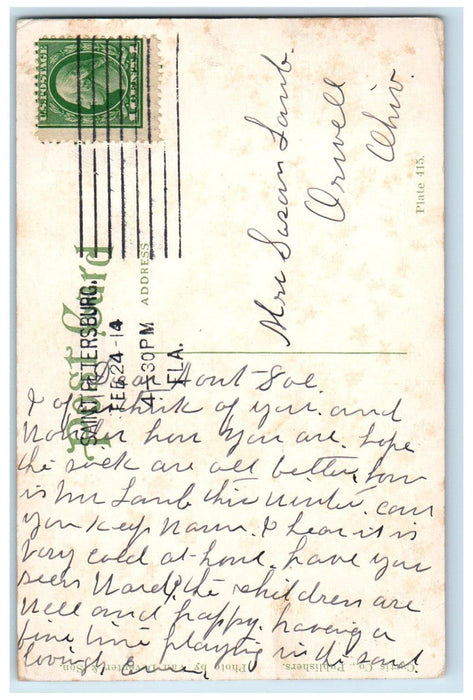 U.S. POSTAGE
1 CENT 1
Post Card
ADDRESS
SAINT PETERSBURG,
FEB 24-14
4-30PM
FLA.
Mrs Susan Lamb.
Orwell
Ohio.
Plate 415.
Dear Aunt Sue
I often think of you. and
wonder how you are. hope
the sick are all better, how
is Mr Lamb this winter. can
you keep warm. I hear it is
very cold at home. have you
seen Ward, the children are
well and happy. having a
fine time playing in the sand
lovingly
Photo by Van De &amp; Son.
Co., Publishers.